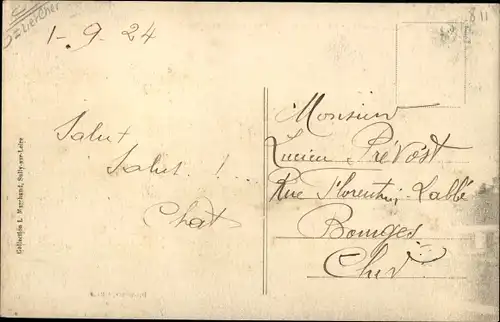 1-9.24
Salut
Salut !...
Chat
Monsieur
Lucien Prévost
Rue St Florentin, Labbé
Bourges
Cher
Collection L. Marchand, Sully-sur-Loire